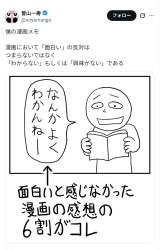 皆山一寿
@soyamanga
フォロー
僕の漫画メモ
漫画において「面白い」の反対は
つまらないではなく
「わからない」もしくは「興味がない」である
なんかよく
わかんねー
面白いと感じなかった
漫画の感想の
6割がコレ